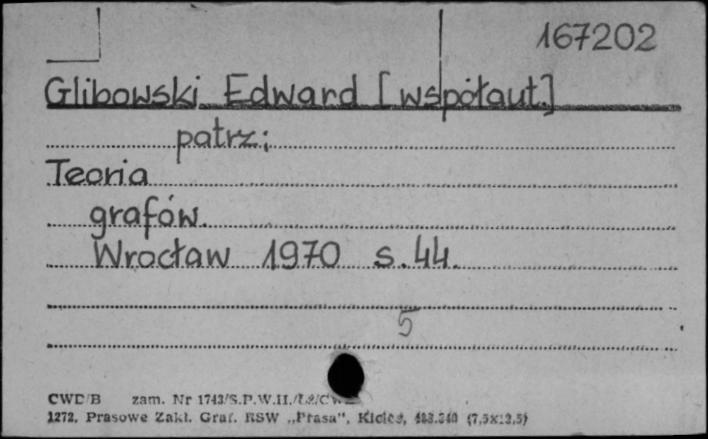 167202
Glibowski Edward [współaut.]
patrz:
Teoria
grafów.
Wrocław 1970 s.44.
5
CWD/B zam. Nr 1743/S.P.W.H.
1272. Prasowe Zakł. Graf. RSW „Prasa", Kielce, (7,5x12,5)